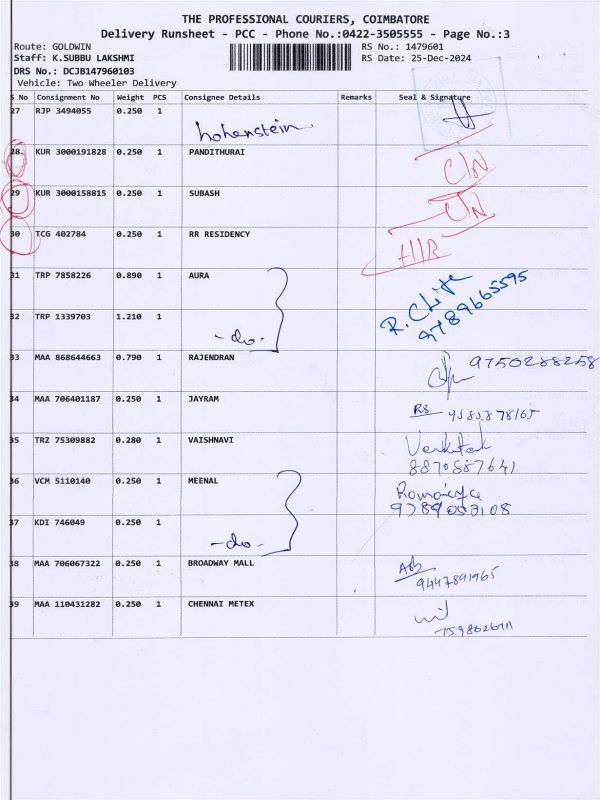 THE PROFESSIONAL COURIERS, COIMBATORE
Delivery Runsheet - PCC - Phone No.:0422-3505555 - Page No.:3
Route: GOLDWIN RS No.: 1479601
Staff: K.SUBBU LAKSHMI RS Date: 25-Dec-2024
DRS No.: DCJB147960103
Vehicle: Two Wheeler Delivery
S No Consignment No Weight PCS Consignee Details Remarks Seal & Signature
27 RJP 3494055 0.250 1 hohenstein
28 KUR 3000191828 0.250 1 PANDITHURAI C/N
29 KUR 3000158815 0.250 1 SUBASH C/N
30 TCG 402784 0.250 1 RR RESIDENCY
31 TRP 7858226 0.890 1 AURA
32 TRP 1339703 1.210 1 -do- 9789665595
33 MAA 868644663 0.790 1 RAJENDRAN 9750288258
34 MAA 706401187 0.250 1 JAYRAM RS
35 TRZ 75309882 0.280 1 VAISHNAVI
8870887641
36 VCM 5110140 0.250 1 MEENAL
37 KDI 746049 0.250 1 -do-
38 MAA 706067322 0.250 1 BROADWAY MALL
9447891965
39 MAA 110431282 0.250 1 CHENNAI METEX